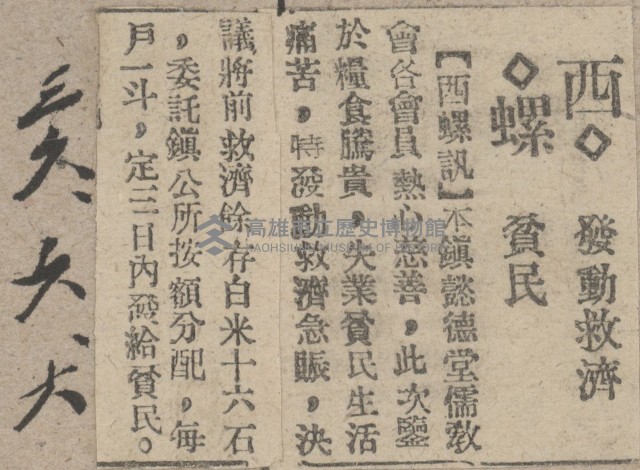 西◇ 發動救濟
◇螺 貧民
【西螺訊】本鎮懿德堂儒教
會各會員熱心慈善，此次鑒
於糧食騰貴，失業貧民生活
痛苦，特發動救濟急賑，決
議將前救濟餘存白米十六石
，委託鎮公所按額分配，每
戶一斗，定三日內發給貧民。
高雄市立歷史博物館
KAOHSIUNG MUSEUM OF HISTORY